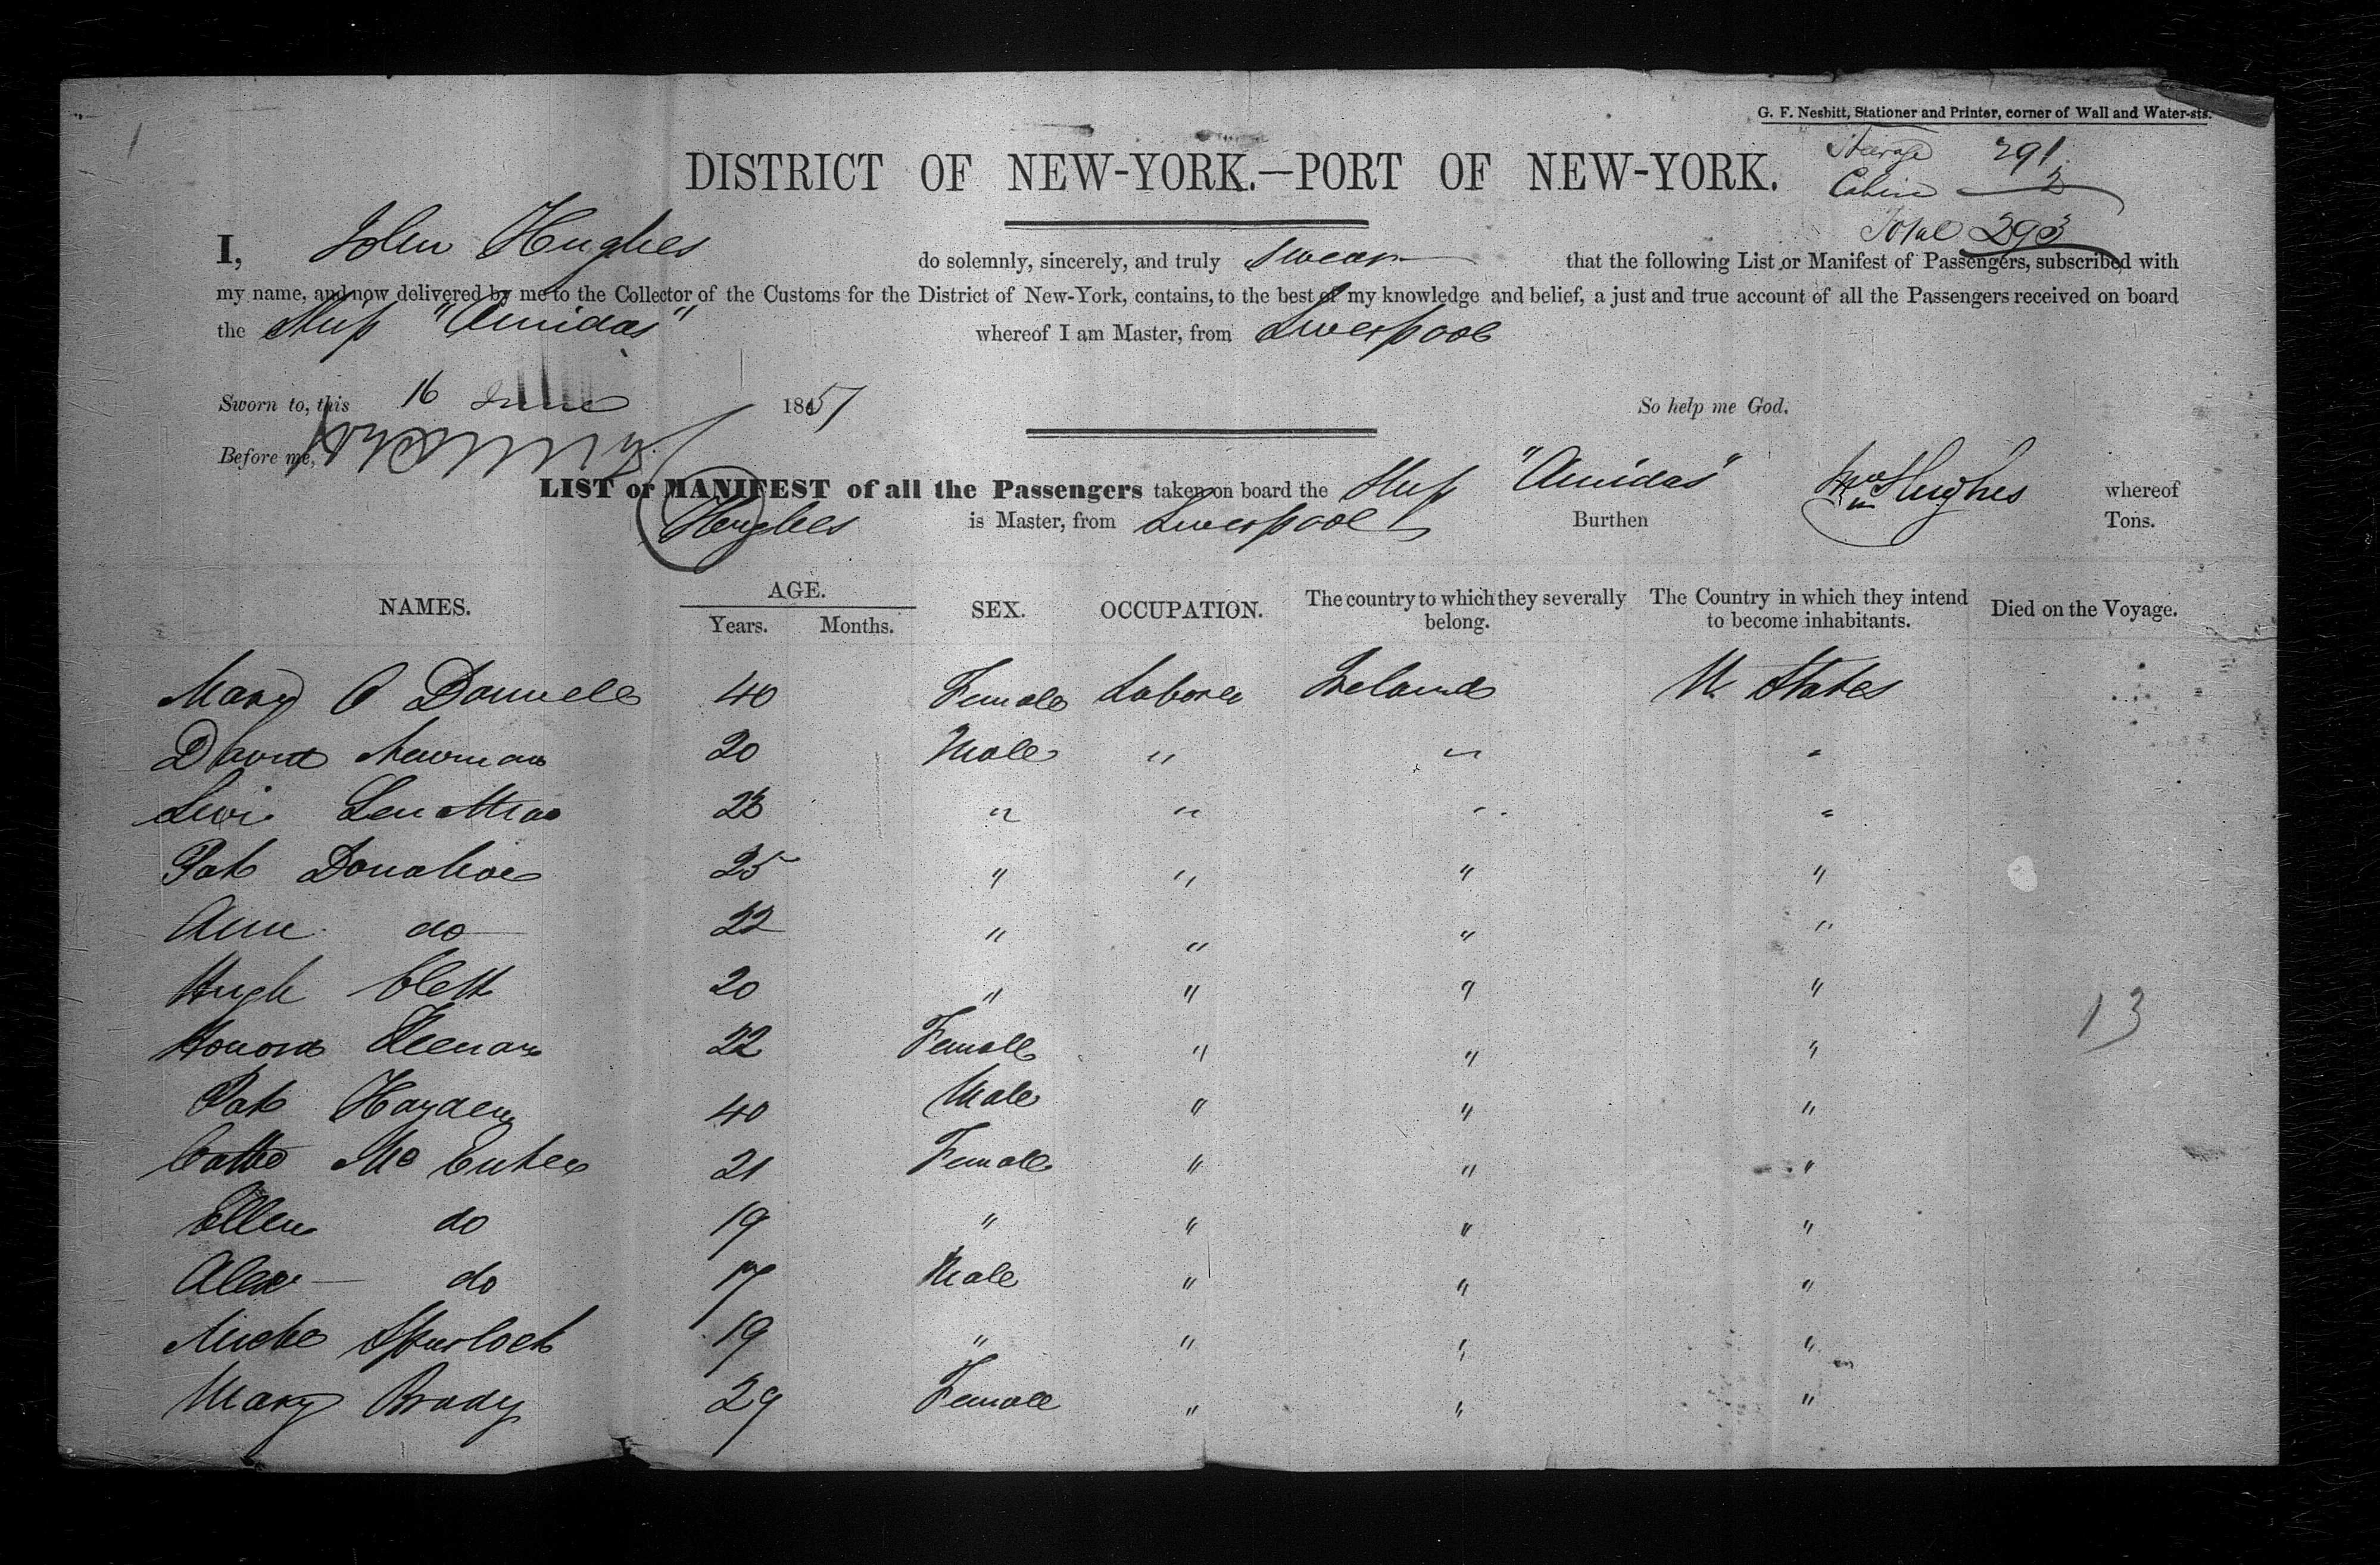 G. F. Nesbitt, Stationer and Printer, corner of Wall and Water-sts.
DISTRICT OF NEW-YORK.—PORT OF NEW-YORK.
Steerage 291
Cabin 2
Total 293
I, John Hughes do solemnly, sincerely, and truly swear that the following List or Manifest of Passengers, subscribed with
my name, and now delivered by me to the Collector of the Customs for the District of New-York, contains, to the best of my knowledge and belief, a just and true account of all the Passengers received on board
the Ship "Amidas" whereof I am Master, from Liverpool
Sworn to, this 16 June 1851 So help me God.
Before me,
LIST or MANIFEST of all the Passengers taken on board the Ship "Amidas" Hughes whereof
Hughes is Master, from Liverpool Burthen Tons.
NAMES. AGE. SEX. OCCUPATION. The country to which they severally belong. The Country in which they intend to become inhabitants. Died on the Voyage.
Years. Months.
Mary O Donnell 40 Female Laborer Ireland U. States
David Newman 20 Male " " "
Levi 23 " " " "
Pat Donahoe 25 " " " "
Ann do 22 " " " "
Hugh 20 " " " "
Honora Keenan 22 Female " " "
13
Pat Hayden 40 Male " " "
Cathe Mc Entee 21 Female " " "
Ellen do 19 " " " "
Alexr do 17 Male " " "
Miche Spurlock 19 " " " "
Mary Brady 29 Female " " "